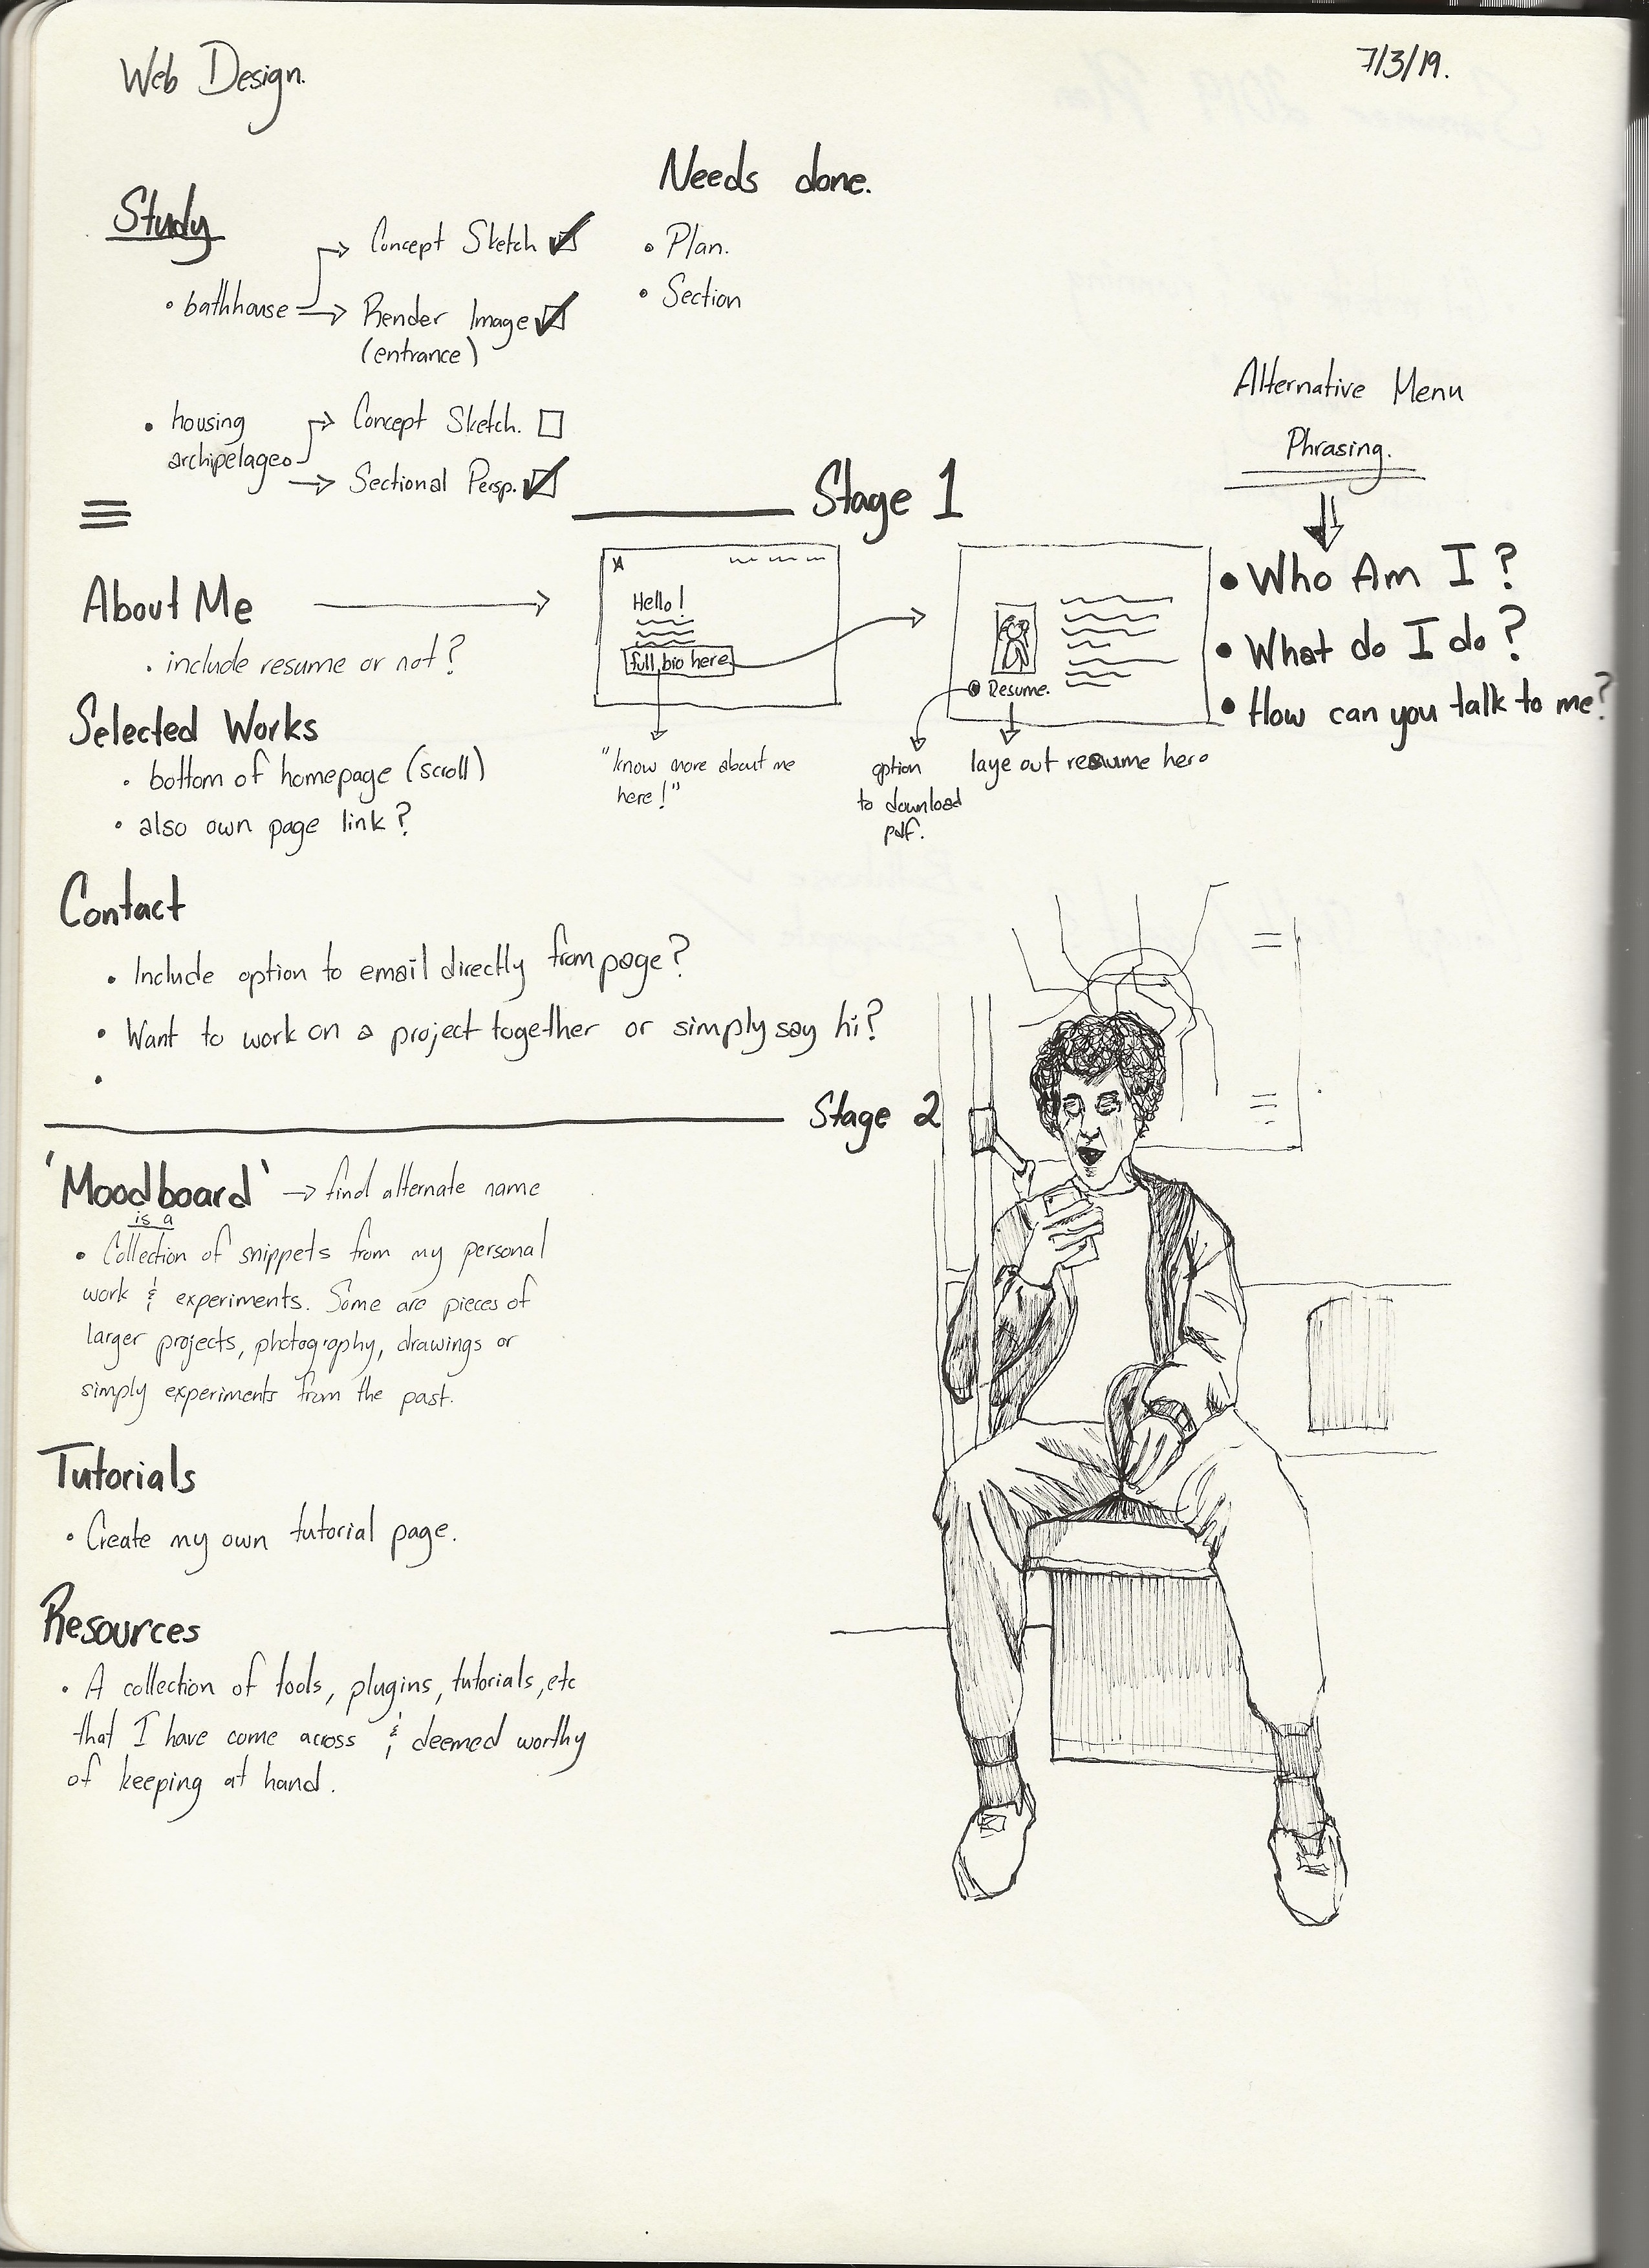 Web Design.
7/3/19.
Study
• bathhouse
Concept Sketch
Render Image
(entrance)
• housing
archipelageo
Concept Sketch.
Sectional Persp.
Needs done.
• Plan.
• Section
Stage 1
About Me
• include resume or not?
Hello!
full bio here
"know more about me
here!"
Resume.
option
to download
pdf.
laye out resume here
Alternative Menu
Phrasing.
• Who Am I?
• What do I do?
• How can you talk to me?
Selected Works
• bottom of homepage (scroll)
• also own page link?
Contact
• Include option to email directly from page?
• Want to work on a project together or simply say hi?
•
Stage 2
'Moodboard' → find alternate name
is a
• Collection of snippets from my personal
work & experiments. Some are pieces of
larger projects, photography, drawings or
simply experiments from the past.
Tutorials
• Create my own tutorial page.
Resources
• A collection of tools, plugins, tutorials, etc
that I have come across & deemed worthy
of keeping at hand.